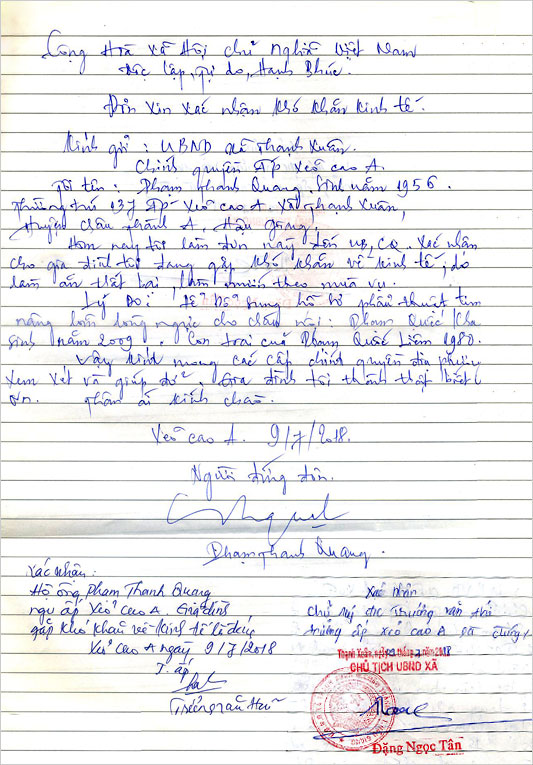 Cộng Hoà Xã Hội chủ Nghĩa Việt Nam
Độc lập, Tự do, Hạnh Phúc.
Đơn Xin Xác nhận khó khăn kinh tế.
Kính gửi : UBND xã Thạnh Xuân.
Chính quyền ấp Xẻo cao A.
Tôi tên : Phạm Thanh Quang. Sinh năm 1956.
Thường trú 137 ấp Xẻo cao A. Xã Thạnh Xuân,
Huyện Châu Thành A, Hậu Giang,
Hôm nay tôi làm đơn này đến UB, CQ. Xác nhận
cho gia đình tôi đang gặp khó khăn về kinh tế, do
làm ăn thất bại, làm mướn theo mùa vụ.
Lý Do : Để bổ sung hồ sơ phẩu thuật tim
nâng lõm lồng ngực cho cháu nội : Phạm Quốc Kha
sinh năm 2009. Con trai của Phạm Quốc Liêm 1980.
Vậy kính mong các cấp chính quyền địa phương
Xem Xét và giúp đỡ. Gia đình tôi thành thật biết
ơn. Thân ái kính chào.
Xẻo cao A. 9/7/2018.
Người đứng đơn.
Quang
Phạm Thanh Quang.
Xác nhận:
Hộ ông, Phạm Thanh Quang
ngụ ấp Xẻo Cao A. Gia đình
gặp khó khăn về kinh tế là đúng
Xẻo Cao A ngày 9/7/2018
T. ấp
Xác nhận
Chữ ký ông Trương văn
trưởng ấp xẻo cao A là đúng!
Thạnh Xuân, ngày tháng 7 năm 2018
CHỦ TỊCH UBND XÃ
Đặng Ngọc Tân